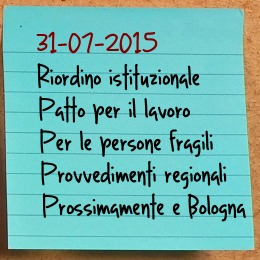 31-07-2015
Riordino istituzionale
Patto per il lavoro
Per le persone fragili
Provvedimenti regionali
Prossimamente e Bologna